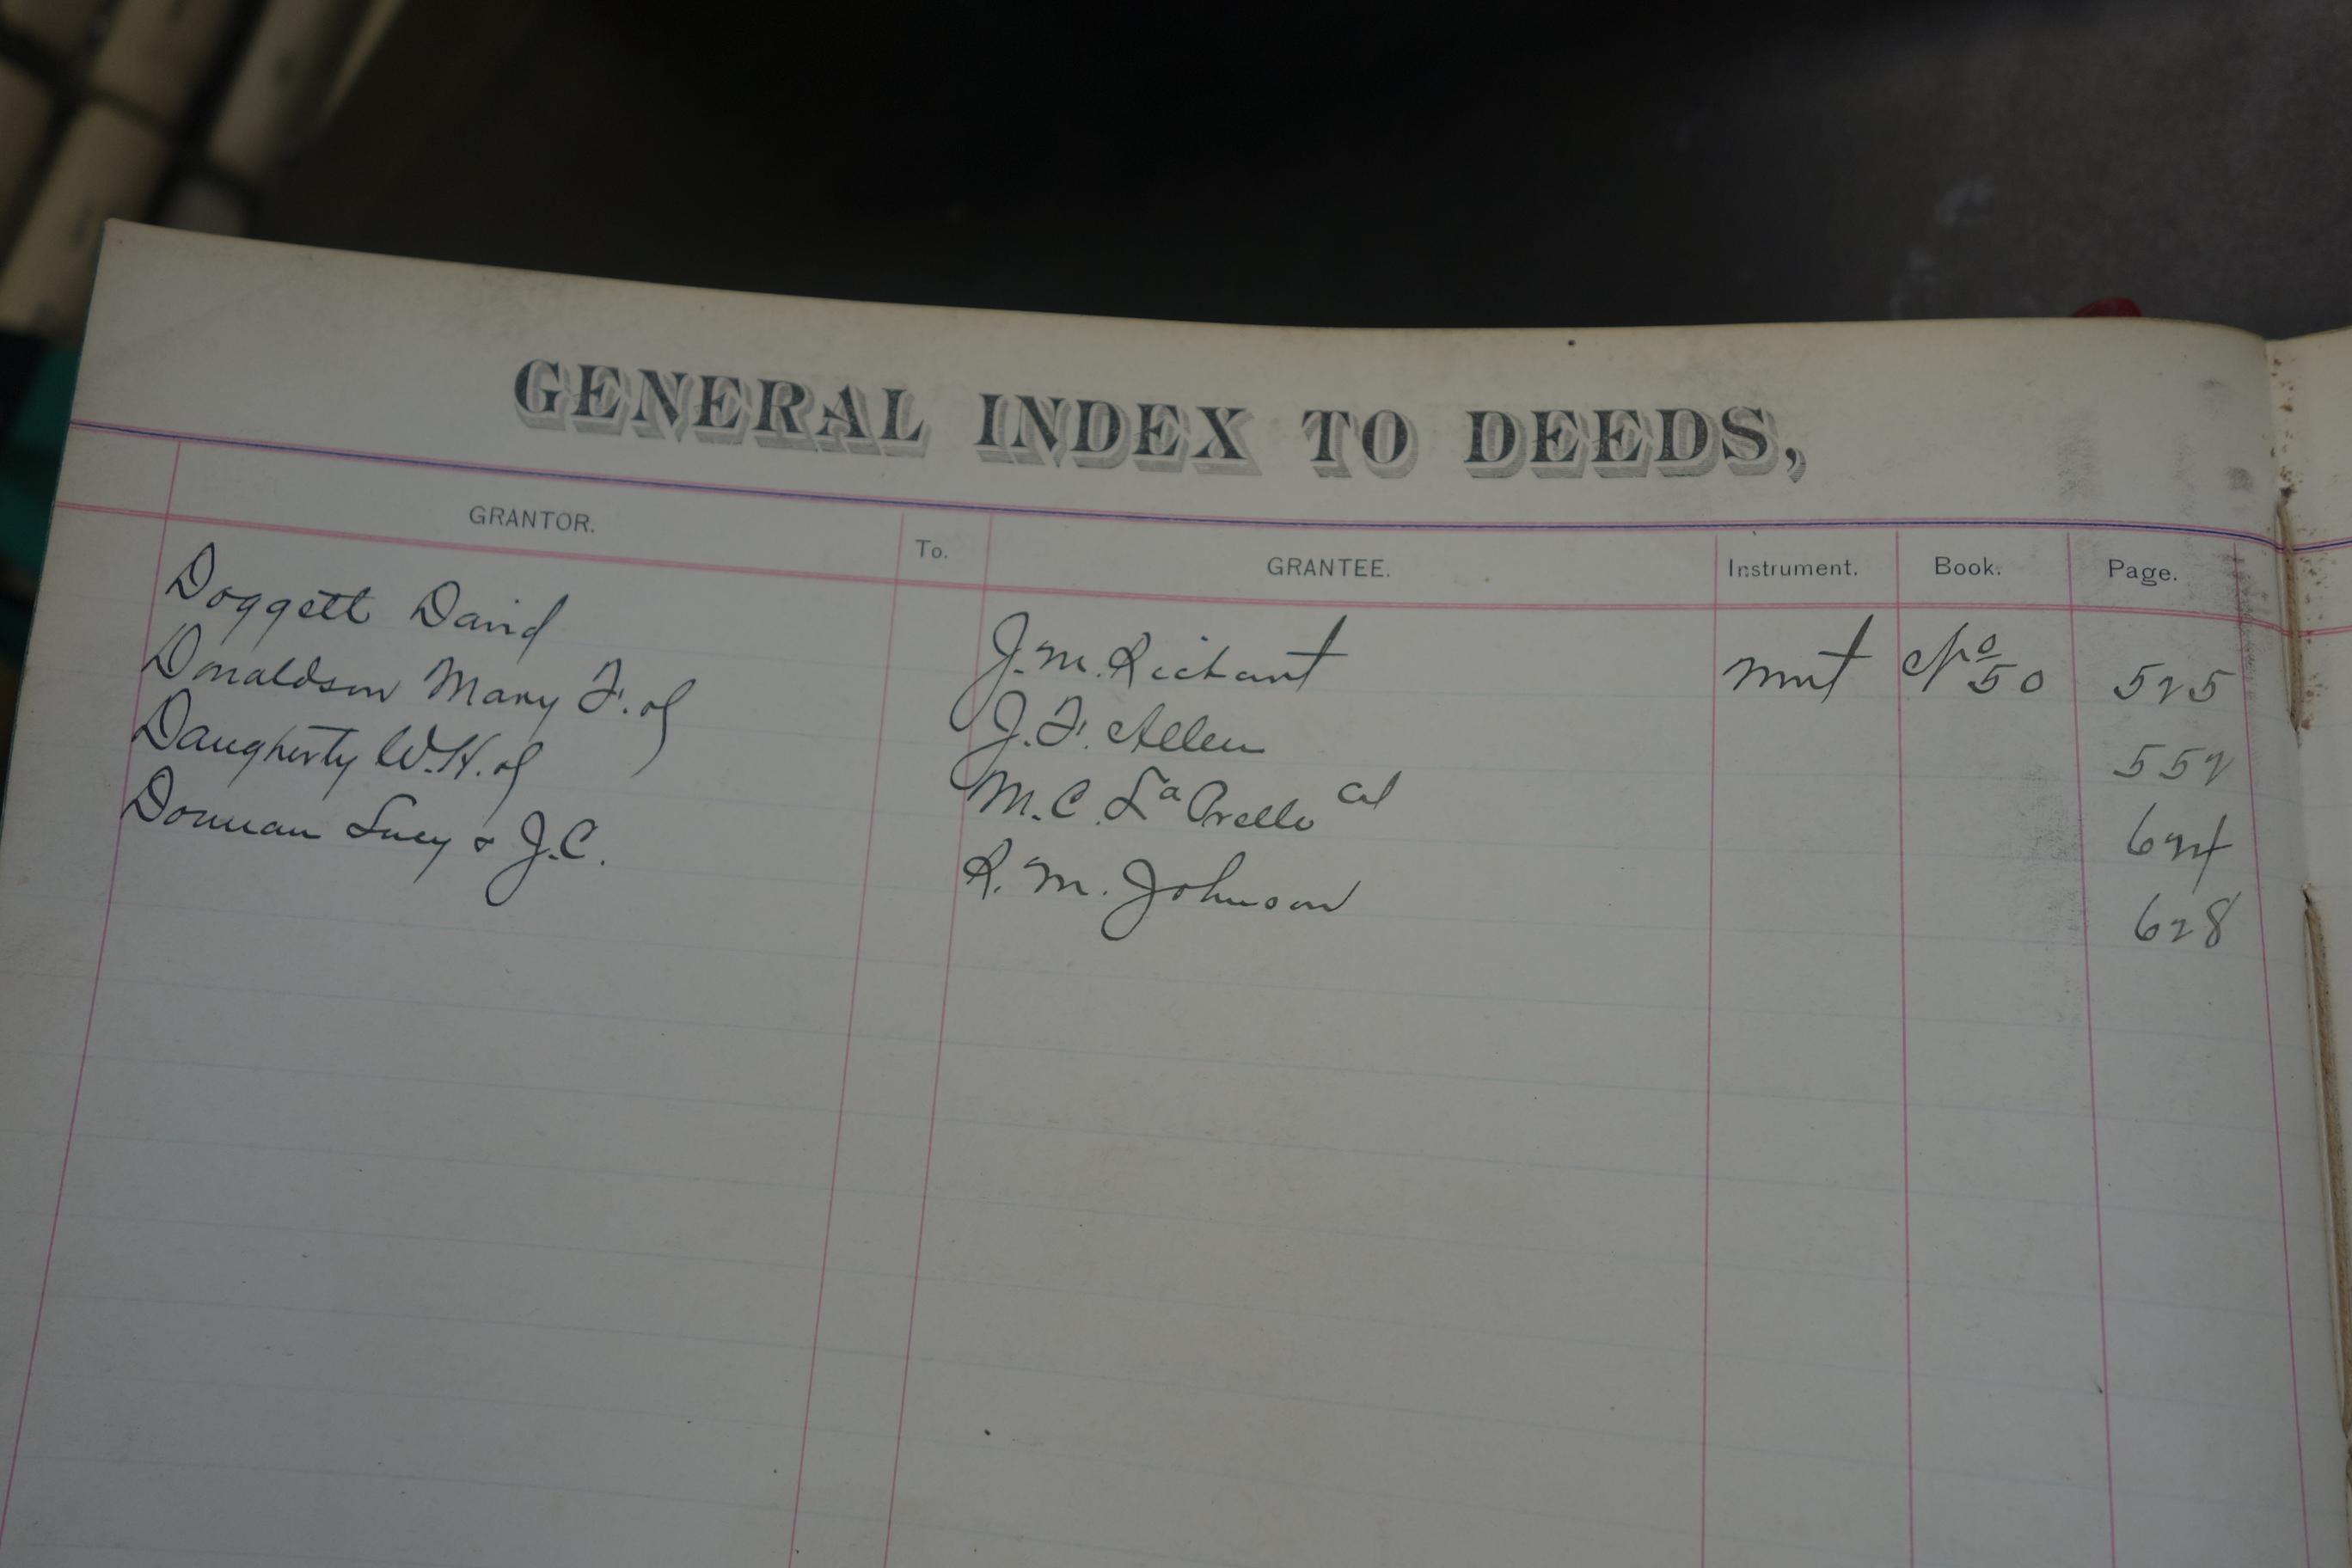 GENERAL INDEX TO DEEDS,
GRANTOR. To. GRANTEE. Instrument. Book. Page.
Doggett David J. M. Richart Mrt No 50 525
Donaldson Mary F. of J. F. Allen 552
Daugherty W. H. of M. C. La 624
Lucy & J. C. R. M. Johnson 628